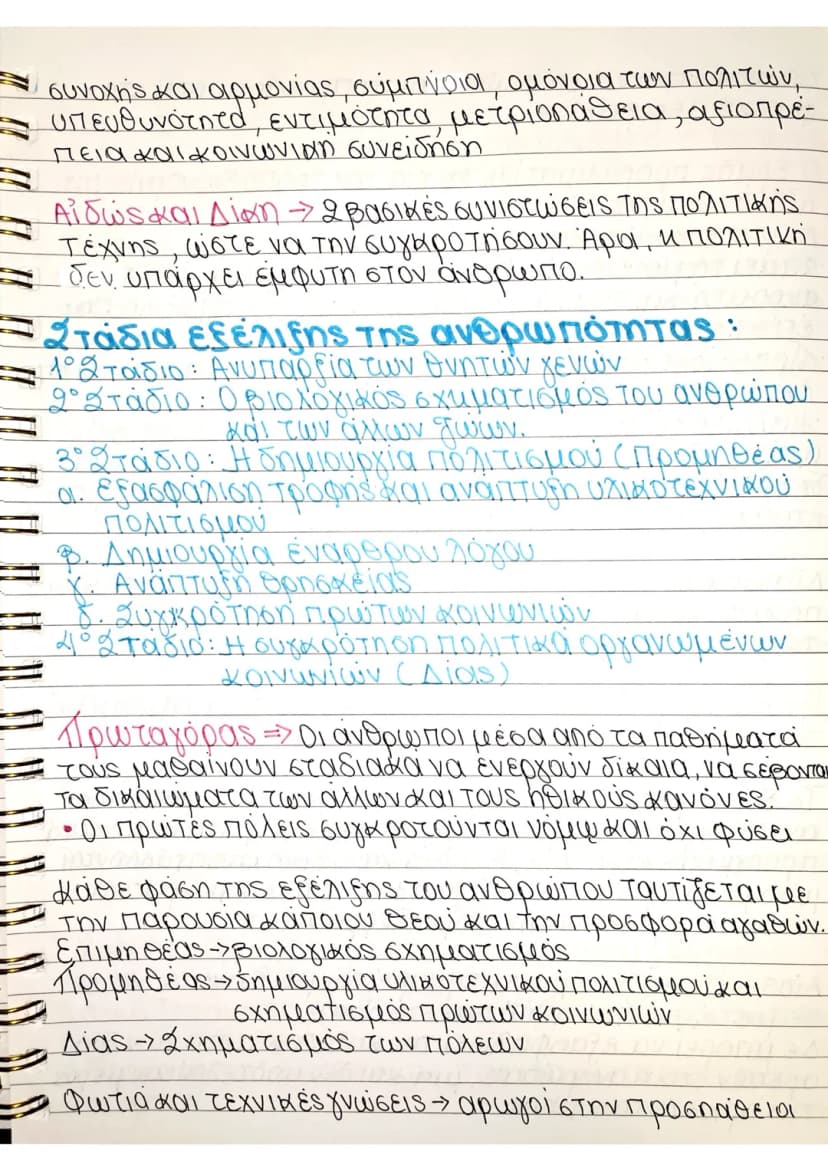 συνοχής και αρμονίας, σύμπνοια, ομόνοια των πολιτών,
υπευθυνότητα, εντιμότητα, μετριοπάθεια, αξιοπρέ-
πεια και κοινωνική συνείδηση
Αἰδώς και Δίκη → 2 βασικές συνιστώσεις της πολιτικής
τέχνης, ώστε να την συγκροτήσουν. Άρα, η πολιτική
δεν υπάρχει έμφυτη στον άνθρωπο.
Στάδια εξέλιξης της ανθρωπότητας:
1° Στάδιο: Ανυπαρξία των θνητών γενών
2° Στάδιο: Ο βιολογικός σχηματισμός του ανθρώπου
και των άλλων ζώων.
3° Στάδιο: Η δημιουργία πολιτισμού (Προμηθέας)
α. Εξασφάλιση τροφής και ανάπτυξη υλικοτεχνικού
πολιτισμού
β. Δημιουργία έναρθρου λόγου
γ. Ανάπτυξη θρησκείας
δ. Συγκρότηση πρώτων κοινωνιών
4° Στάδιο: Η συγκρότηση πολιτικά οργανωμένων
κοινωνιών (Δίας)
Πρωταγόρας ⇒ Οι άνθρωποι μέσα από τα παθήματά
τους μαθαίνουν σταδιακά να ενεργούν δίκαια, να σέβονται
τα δικαιώματα των άλλων και τους ηθικούς κανόνες.
• Οι πρώτες πόλεις συγκροτούνται νόμῳ και όχι φύσει
Κάθε φάση της εξέλιξης του ανθρώπου ταυτίζεται με
την παρουσία κάποιου θεού και την προσφορά αγαθών.
Επιμηθέας → βιολογικός σχηματισμός
Προμηθέας → δημιουργία υλικοτεχνικού πολιτισμού και
σχηματισμός πρώτων κοινωνιών
Δίας → Σχηματισμός των πόλεων
Φωτιά και τεχνικές γνώσεις → αρωγοί στην προσπάθεια